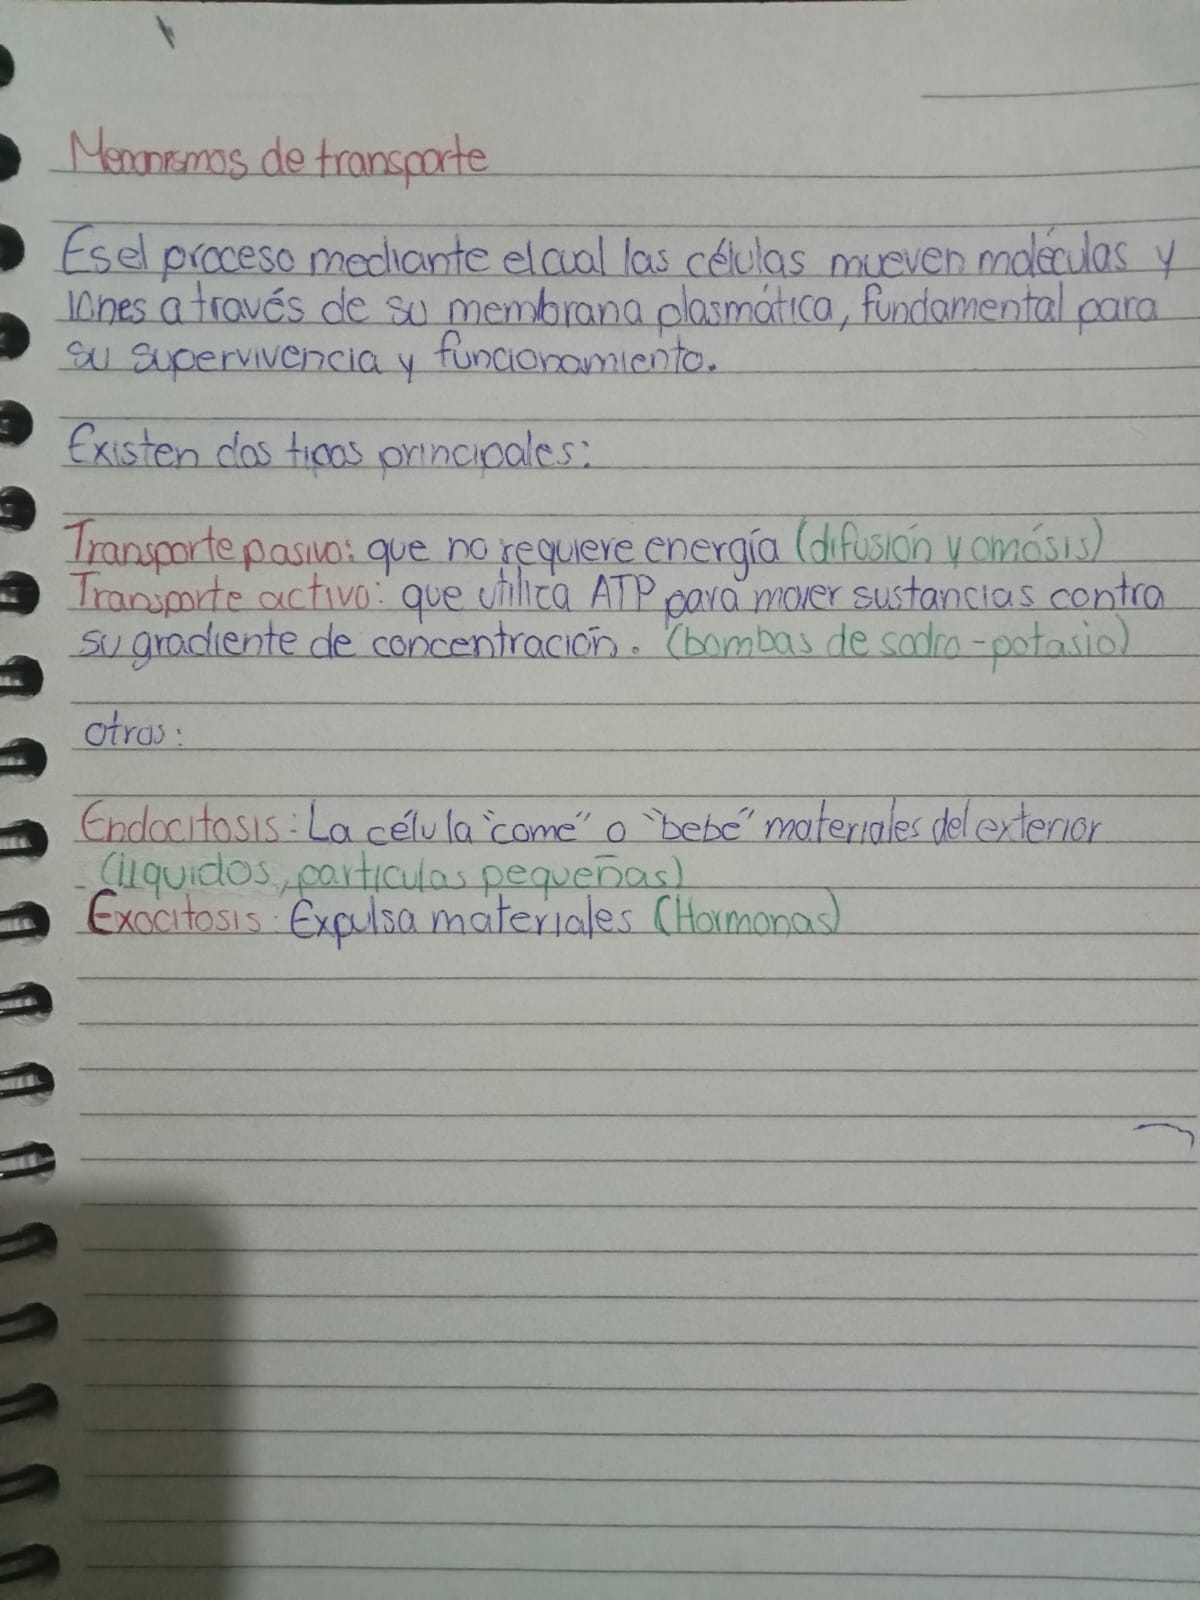 Mecanismos de transporte
Es el proceso mediante el cual las células mueven moléculas y
iones a través de su membrana plasmática, fundamental para
su supervivencia y funcionamiento.
Existen dos tipos principales:
Transporte pasivo: que no requiere energía (difusión y omósis)
Transporte activo: que utilica ATP para mover sustancias contra
su gradiente de concentración. (bombas de sodio-potasio)
otras:
Endocitosis: La célula "come" o "bebe" materiales del exterior
(líquidos, partículas pequeñas)
Exocitosis: Expulsa materiales (Hormonas)